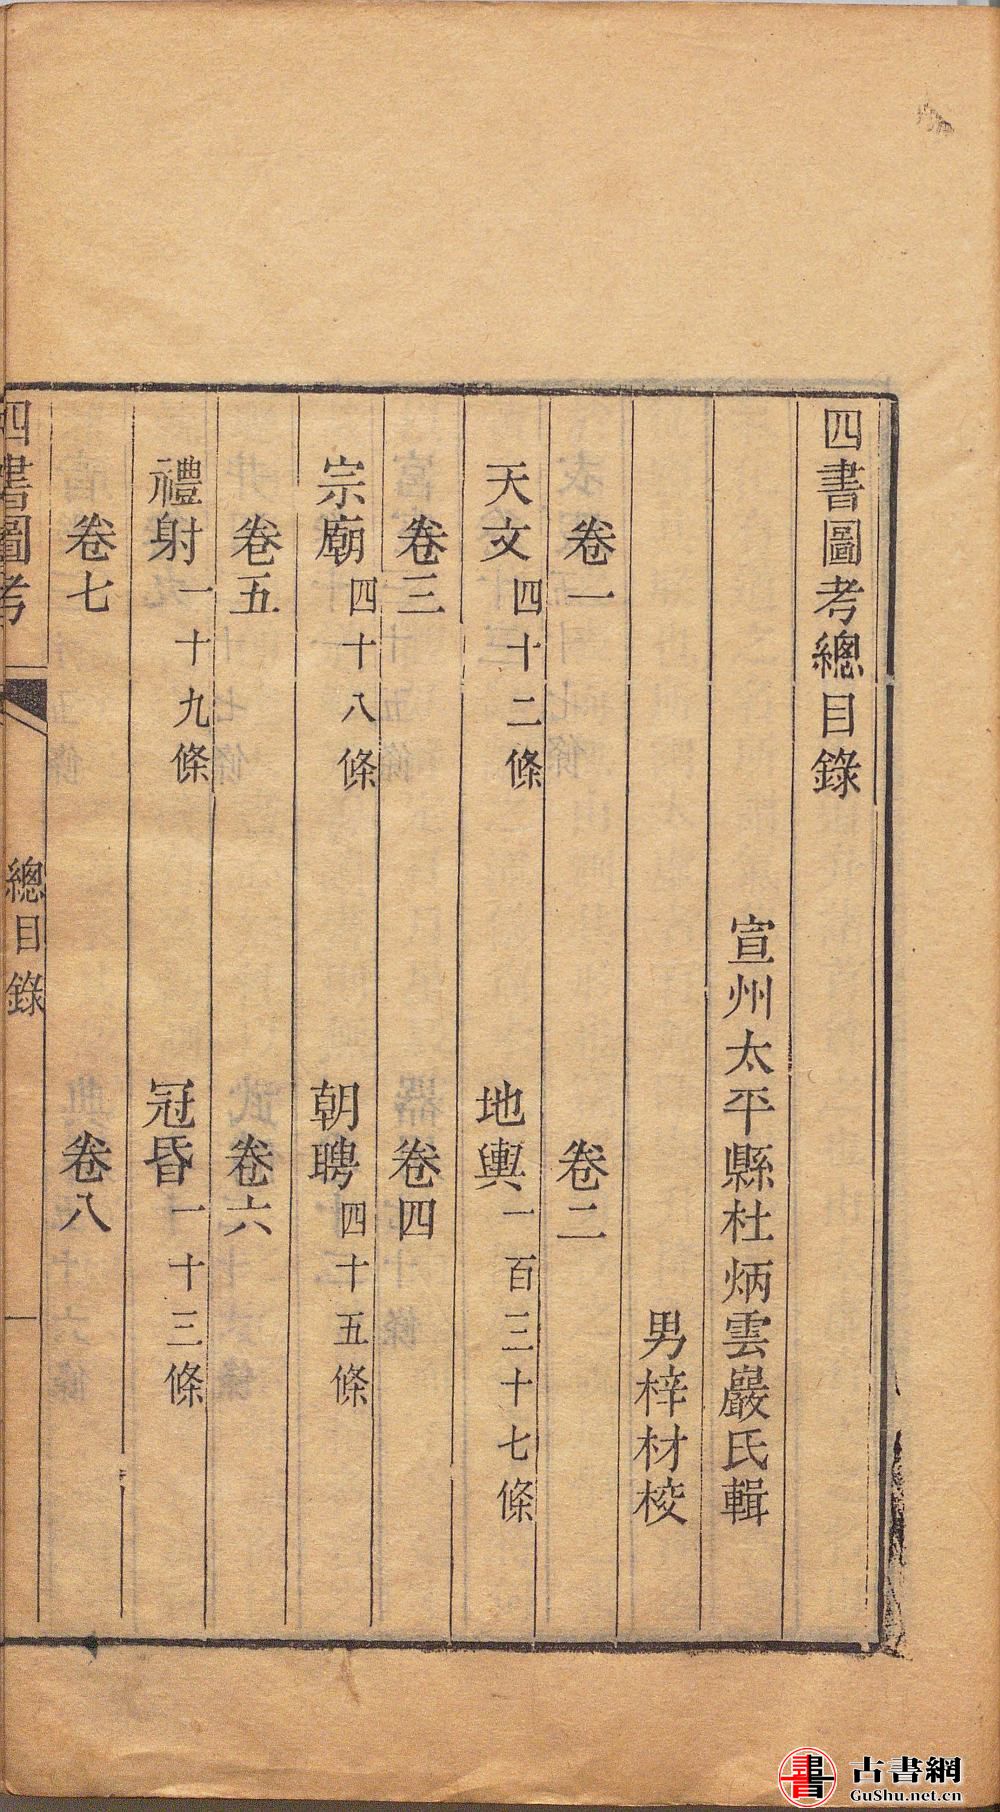 四書圖考總目錄
宣州太平縣杜炳雲巖氏輯
男梓材校
卷一
卷二
天文四十二條
地輿一百三十七條
卷三
卷四
宗廟四十八條
朝聘四十五條
卷五
卷六
禮射一十九條
冠昏一十三條
卷七
卷八
四書圖考
總目錄
一
古書網
GuShu.net.cn